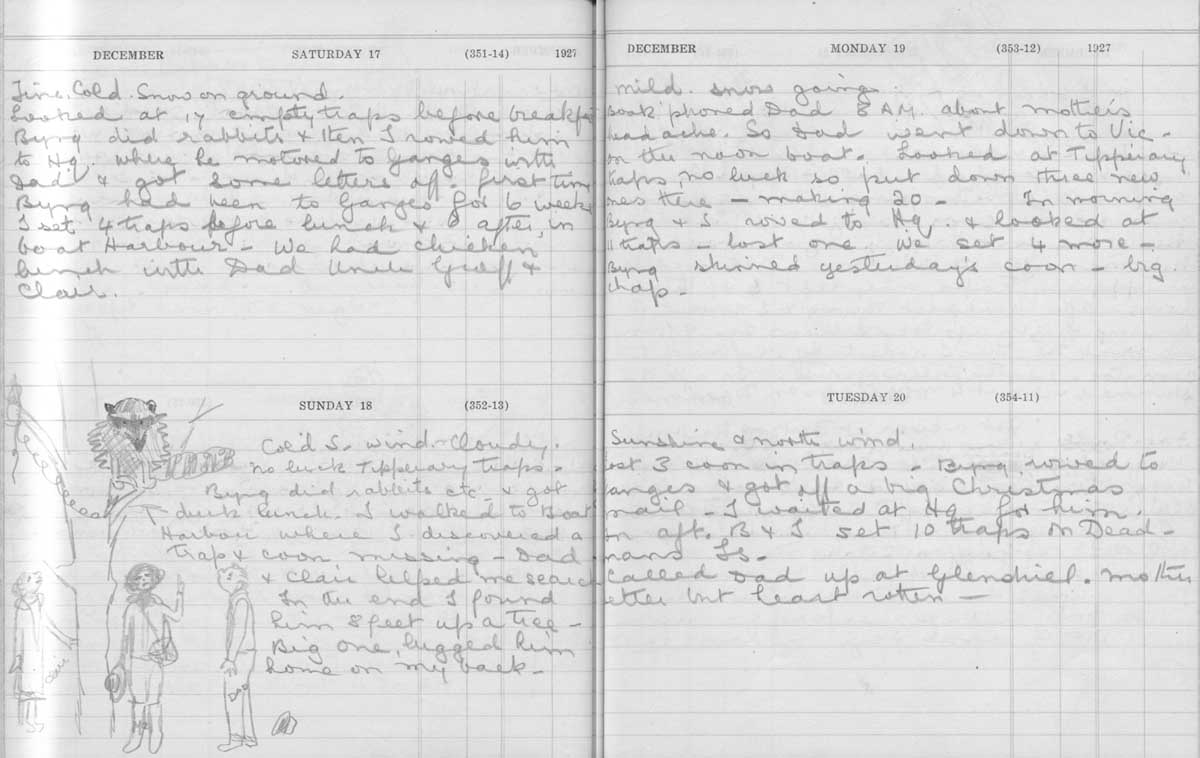 DECEMBER SATURDAY 17 (351-14) 1927
Fine. Cold. Snow on ground.
Looked at 17 empty traps before breakf
Byng did rabbits & then I rowed him
to Hq. where he motored to Ganges with
Dad & got some letters off. first time
Byng had been to Ganges for 6 weeks
I set 4 traps before lunch & 6 after, in
boat Harbour - We had chicken
lunch with Dad Uncle &
Clair.
SUNDAY 18 (352-13)
Cold S. wind - Cloudy.
no luck Tipperary traps -
Byng did rabbits etc & got
duck lunch. I walked to Boat
Harbour where I discovered a
trap & coon missing - Dad
& Clair helped me search
In the end I found
him 8 feet up a tree -
Big one, lugged him
home on my back -
Clair
DAD
DECEMBER MONDAY 19 (353-12) 1927
mild. snow going.
phoned Dad 8 AM. about mother's
head ache. So Dad went down to Vic -
on the noon boat. Looked at Tipperary
traps, no luck so put down three new
ones there - making 20 - In morning
Byng & I rowed to Hq. & looked at
traps - lost one. We set 4 more -
Byng skinned yesterday's coon - big
chap -
TUESDAY 20 (354-11)
Sunshine & north wind.
lost 3 coon in traps - Byng rowed to
anges & got off a big Christmas
mail - I waited at Hq for him.
In aft. B & I set 10 traps on Dead-
mans Is -
Called Dad up at Glenshiel. mother
etter but heart rotten -